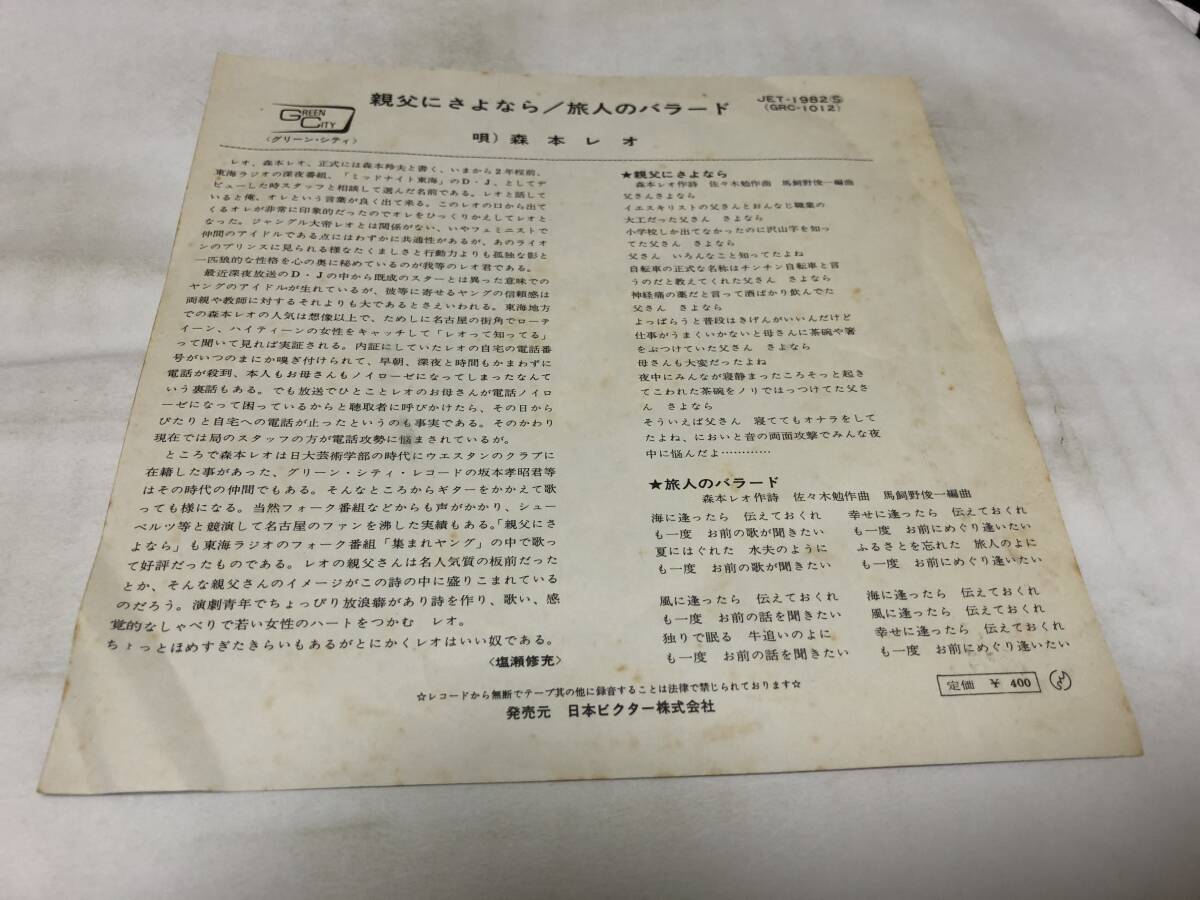 GREEN CITY
〈グリーン・シティ〉
親父にさよなら/旅人のバラード
JET-1982Ⓢ
(GRC-1012)
唄)森本レオ
レオ、森本レオ、正式には森本玲夫と書く、いまから2年程前、
東海ラジオの深夜番組、「ミッドナイト東海」のD・J、としてデ
ビューした時スタッフと相談して選んだ名前である。レオと話して
いると俺、オレという言葉が良く出て来る。このレオの口から出て
くるオレが非常に印象的だったのでオレをひっくりかえしてレオと
なった。ジャングル大帝レオとは関係がない、いやフェミニストで
仲間のアイドルである点にはわずかに共通性があるが、あのライオ
ンのプリンスに見られる様なたくましさと行動力よりも孤独な影と
一匹狼的な性格を心の奥に秘めているのが我等のレオ君である。
最近深夜放送のD・Jの中から既成のスターとは異った意味での
ヤングのアイドルが生れているが、彼等に寄せるヤングの信頼感は
両親や教師に対するそれよりも大であるとさえいわれる。東海地方
での森本レオの人気は想像以上で、ためしに名古屋の街角でローテ
ィーン、ハイティーンの女性をキャッチして「レオって知ってる」
って聞いて見れば実証される。内証にしていたレオの自宅の電話番
号がいつのまにか嗅ぎ付けられて、早朝、深夜と時間もかまわずに
電話が殺到、本人もお母さんもノイローゼになってしまったなんて
いう裏話もある。でも放送でひとことレオのお母さんが電話ノイロ
ーゼになって困っているからと聴取者に呼びかけたら、その日から
ぴたりと自宅への電話が止ったというのも事実である。そのかわり
現在では局のスタッフの方が電話攻勢に悩まされているが。
ところで森本レオは日大芸術学部の時代にウエスタンのクラブに
在籍した事があった、グリーン・シティ・レコードの坂本孝昭君等
はその時代の仲間でもある。そんなところからギターをかかえて歌
っても様になる。当然フォーク番組などからも声がかかり、シュー
ベルツ等と競演して名古屋のファンを沸した実績もある。「親父にさ
よなら」も東海ラジオのフォーク番組「集まれヤング」の中で歌っ
て好評だったものである。レオの親父さんは名人気質の板前だった
とか、そんな親父さんのイメージがこの詩の中に盛りこまれている
のだろう。演劇青年でちょっぴり放浪癖があり詩を作り、歌い、感
覚的なしゃべりで若い女性のハートをつかむ レオ。
ちょっとほめすぎたきらいもあるがとにかくレオはいい奴である。
〈塩瀬修充〉
★親父にさよなら
森本レオ作詩 佐々木勉作曲 馬飼野俊一編曲
父さんさよなら
イエスキリストの父さんとおんなじ職業の
大工だった父さん さよなら
小学校しか出てなかったのに沢山字を知っ
てた父さん さよなら
父さん いろんなこと知ってたよね
自転車の正式な名称はチンチン自転車と言
うのだと教えてくれた父さん さよなら
神経痛の薬だと言って酒ばかり飲んでた
父さん さよなら
よっぱらうと普段はきげんがいいんだけど
仕事がうまくいかないと母さんに茶碗や箸
をぶつけていた父さん さよなら
母さんも大変だったよね
夜中にみんなが寝静まったころそっと起き
てこわれた茶碗をノリではっつけてた父さ
ん さよなら
そういえば父さん 寝ててもオナラをして
たよね、においと音の両面攻撃でみんな夜
中に悩んだよ…………
★旅人のバラード
森本レオ作詩 佐々木勉作曲 馬飼野俊一編曲
海に逢ったら 伝えておくれ
も一度 お前の歌が聞きたい
夏にはぐれた 水夫のように
も一度 お前の歌が聞きたい
風に逢ったら 伝えておくれ
も一度 お前の話を聞きたい
独りで眠る 牛追いのよに
も一度 お前の話を聞きたい
幸せに逢ったら 伝えておくれ
も一度 お前にめぐり逢いたい
ふるさとを忘れた 旅人のよに
も一度 お前にめぐり逢いたい
海に逢ったら 伝えておくれ
風に逢ったら 伝えておくれ
幸せに逢ったら 伝えておくれ
も一度 お前にめぐり逢いたい
定価 ¥400
☆レコードから無断でテープ其の他に録音することは法律で禁じられております☆
発売元 日本ビクター株式会社